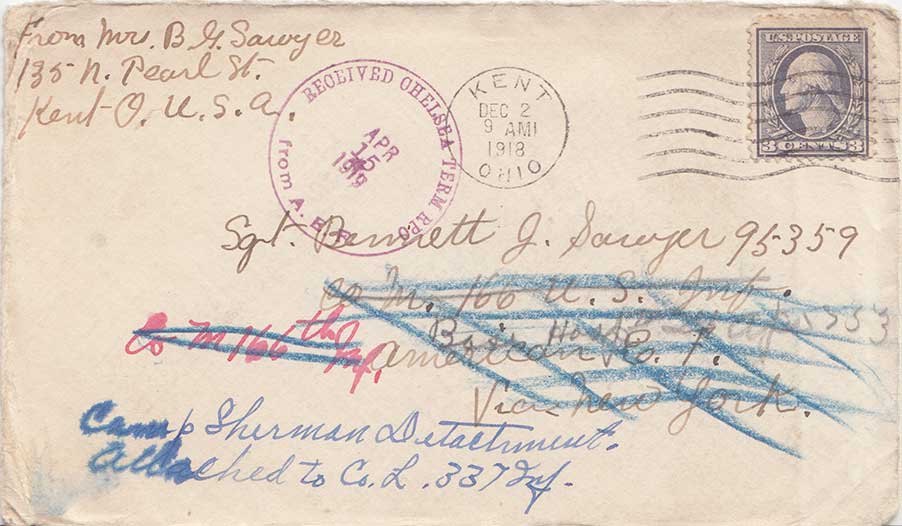 From Mrs. B. G. Sawyer
135 N. Pearl St.
Kent O. U. S. A.
RECEIVED CHELSEA TERM RPO
APR
15
1919
from A. E. F.
KENT
DEC 2
9 AM
1918
OHIO
U.S. POSTAGE
3 CENTS 3
Sgt. Bennett J. Sawyer 95359
Co M. 166 U. S. Inf.
Base Hosp
Co M 166th Inf.
American E. F.
Via New York.
Camp Sherman Detachment.
Attached to Co. L. 337 Inf.